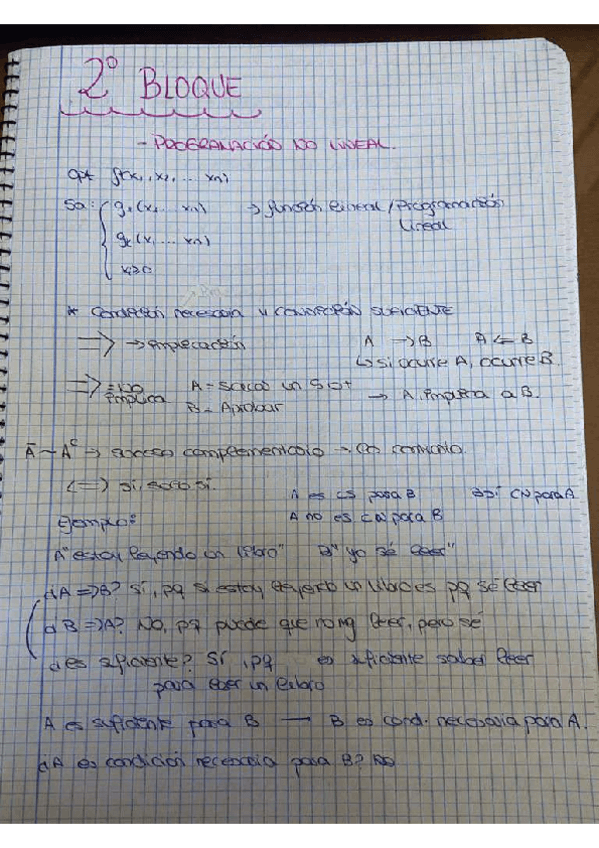 2º BLOQUE
- PROGRAMACIÓN NO LINEAL.
opt f(x1, x2, ... xn)
sa: { g1(x1 ... xn) → función lineal / programación lineal
gk(x1 ... xn)
x≥0
* Condición necesaria y CONDICIÓN SUFICIENTE
⇒ → implicación A → B A ← B
↳ si ocurre A, ocurre B.
⇒ no implica A = sacas un 5 o + → A implica a B.
B = Aprobar
Ā ~ Aᶜ → suceso complementario → lo contrario.
(⇔) sí, solo sí. A es CS para B B sí CN para A
Ejemplo: A no es CN para B
A "estoy leyendo un libro" B "yo sé leer"
¿A ⇒ B? Sí, pq si estoy leyendo un libro es pq sé leer
¿B ⇒ A? No, pq puede que no leer, pero sé
¿es suficiente? Sí, pq es suficiente saber leer
para leer un libro
A es suficiente para B → B es cond. necesaria para A.
¿A es condición necesaria para B? No